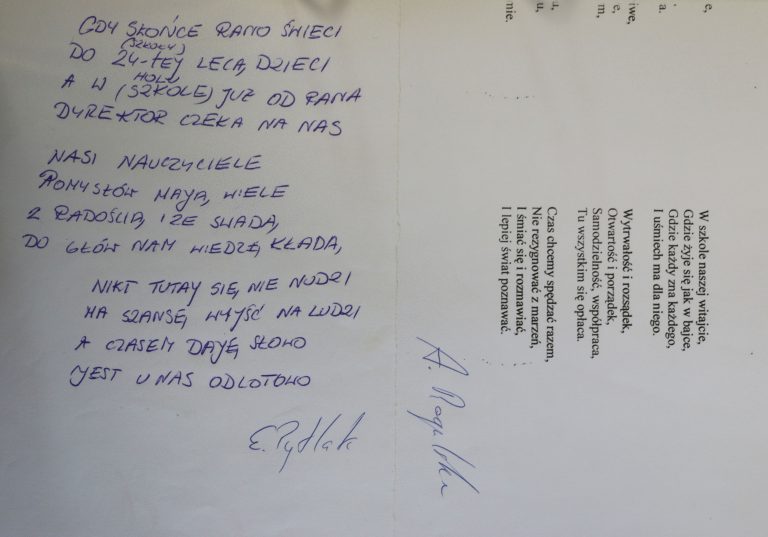 GDY SŁOŃCE RANO ŚWIECI
(SZKOŁY)
DO 24-TEJ LECĄ DZIECI
HOLU
A W (SZKOLE) JUŻ OD RANA
DYREKTOR CZEKA NA NAS
NASI NAUCZYCIELE
POMYSŁÓW MAJĄ WIELE
Z RADOŚCIĄ I ZE SWADĄ
DO GŁÓW NAM WIEDZĘ KŁADĄ
NIKT TUTAJ SIĘ NIE NUDZI
MA SZANSĘ WYJŚĆ NA LUDZI
A CZASEM DAJĘ SŁOWO
JEST U NAS ODLOTOWO
E.
A.
e,
i
a.
iwe,
e,
m,
u,
u,
nie.
W szkole naszej witajcie,
Gdzie żyje się jak w bajce,
Gdzie każdy zna każdego,
I uśmiech ma dla niego.
Wytrwałość i rozsądek,
Otwartość i porządek,
Samodzielność, współpraca,
Tu wszystkim się opłaca.
Czas chcemy spędzać razem,
Nie rezygnować z marzeń,
I śmiać się i rozmawiać,
I lepiej świat poznawać.